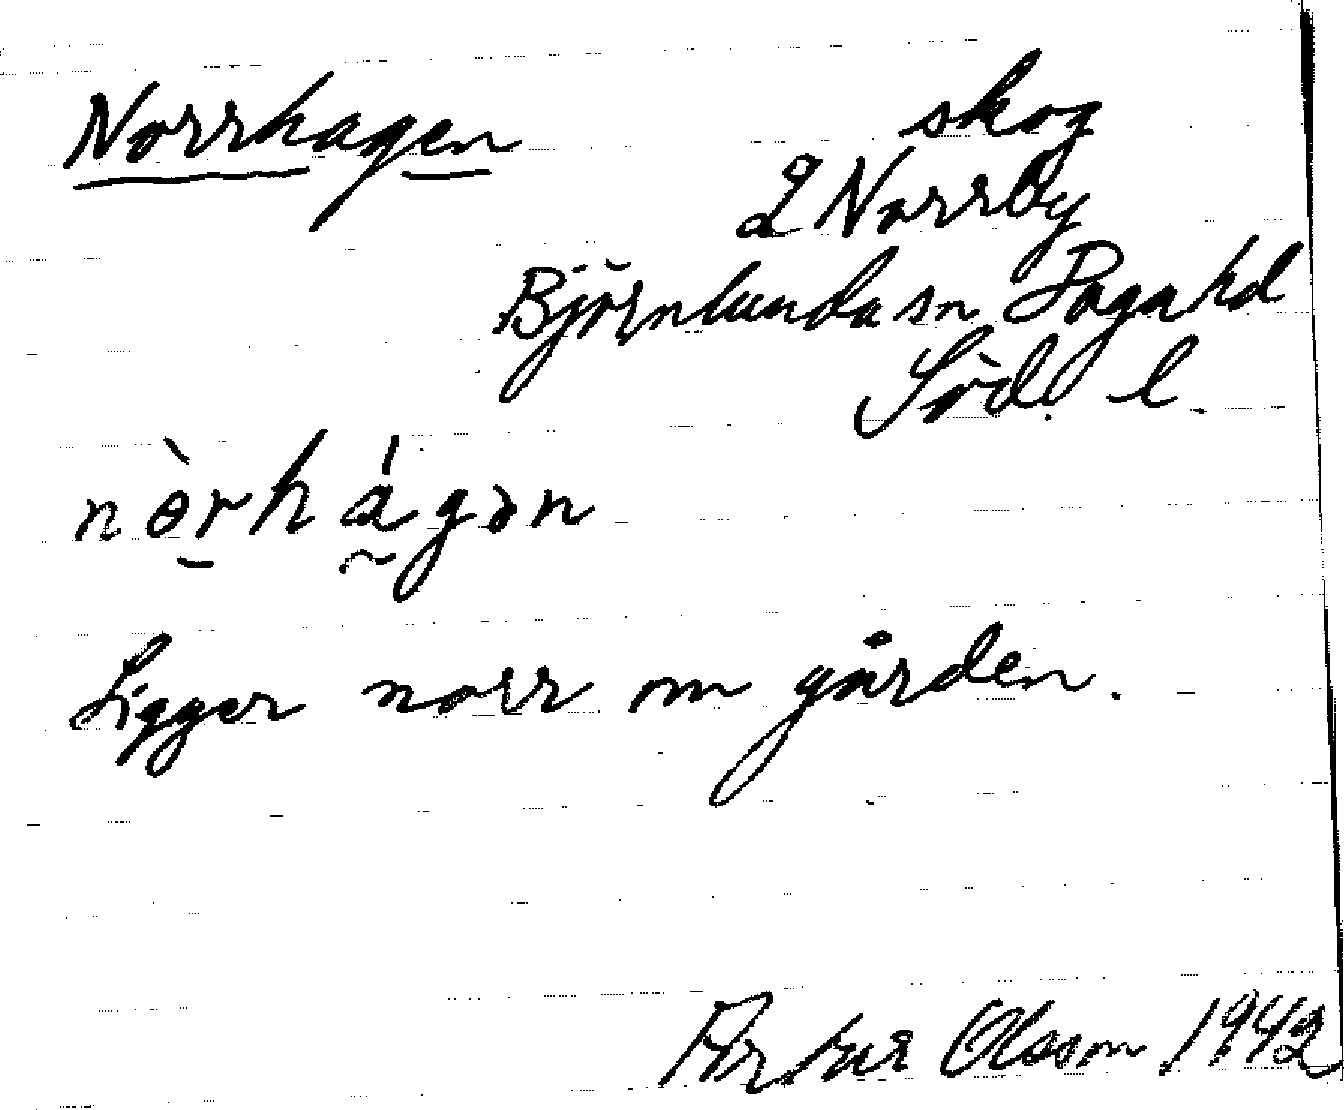 Norrhagen
skog
2 Norrby
Björnlunda sn Daga hd
Söd. l.
nòrhágən
Ligger norr om gården.
Artur Olsson 1942